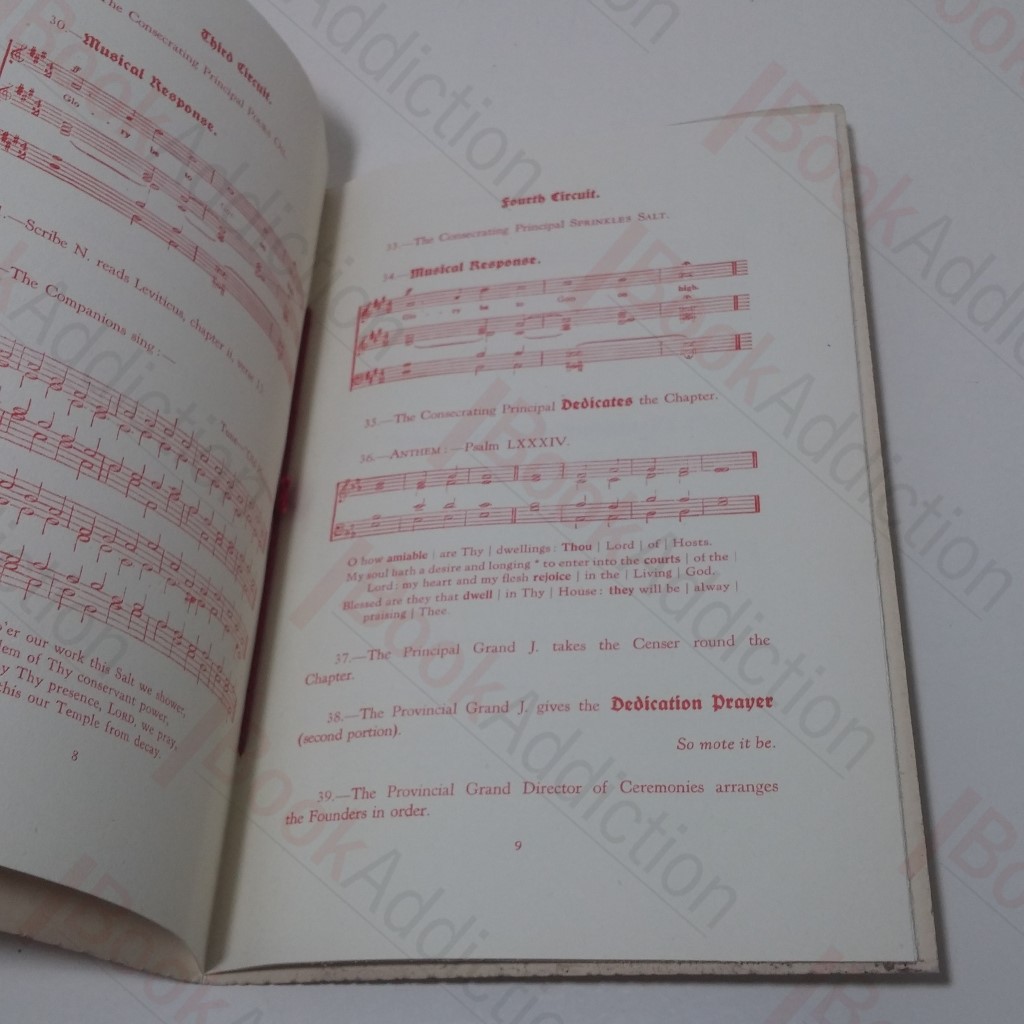 Third Circuit.
The Consecrating Principal Pours Oil.
30.—Musical Response.
ff
Glo - - ry be
Scribe N. reads Leviticus, chapter ii, verse 13.
—The Companions sing:—
o'er our work this Salt we shower,
lem of Thy conservant power,
y Thy presence, LORD, we pray,
this our Temple from decay.
8
Fourth Circuit.
33.—The Consecrating Principal SPRINKLES SALT.
34.—Musical Response.
Glo - - ry be to God on high.
35.—The Consecrating Principal Dedicates the Chapter.
36.—ANTHEM:—Psalm LXXXIV.
O how amiable | are Thy | dwellings : Thou | Lord | of | Hosts.
My soul hath a desire and longing * to enter into the courts | of the |
Lord : my heart and my flesh rejoice | in the | Living | God.
Blessed are they that dwell | in Thy | House : they will be | alway |
praising | Thee.
37.—The Principal Grand J. takes the Censer round the
Chapter.
38.—The Provincial Grand J. gives the Dedication Prayer
(second portion).
So mote it be.
39.—The Provincial Grand Director of Ceremonies arranges
the Founders in order.
9
BookAddiction